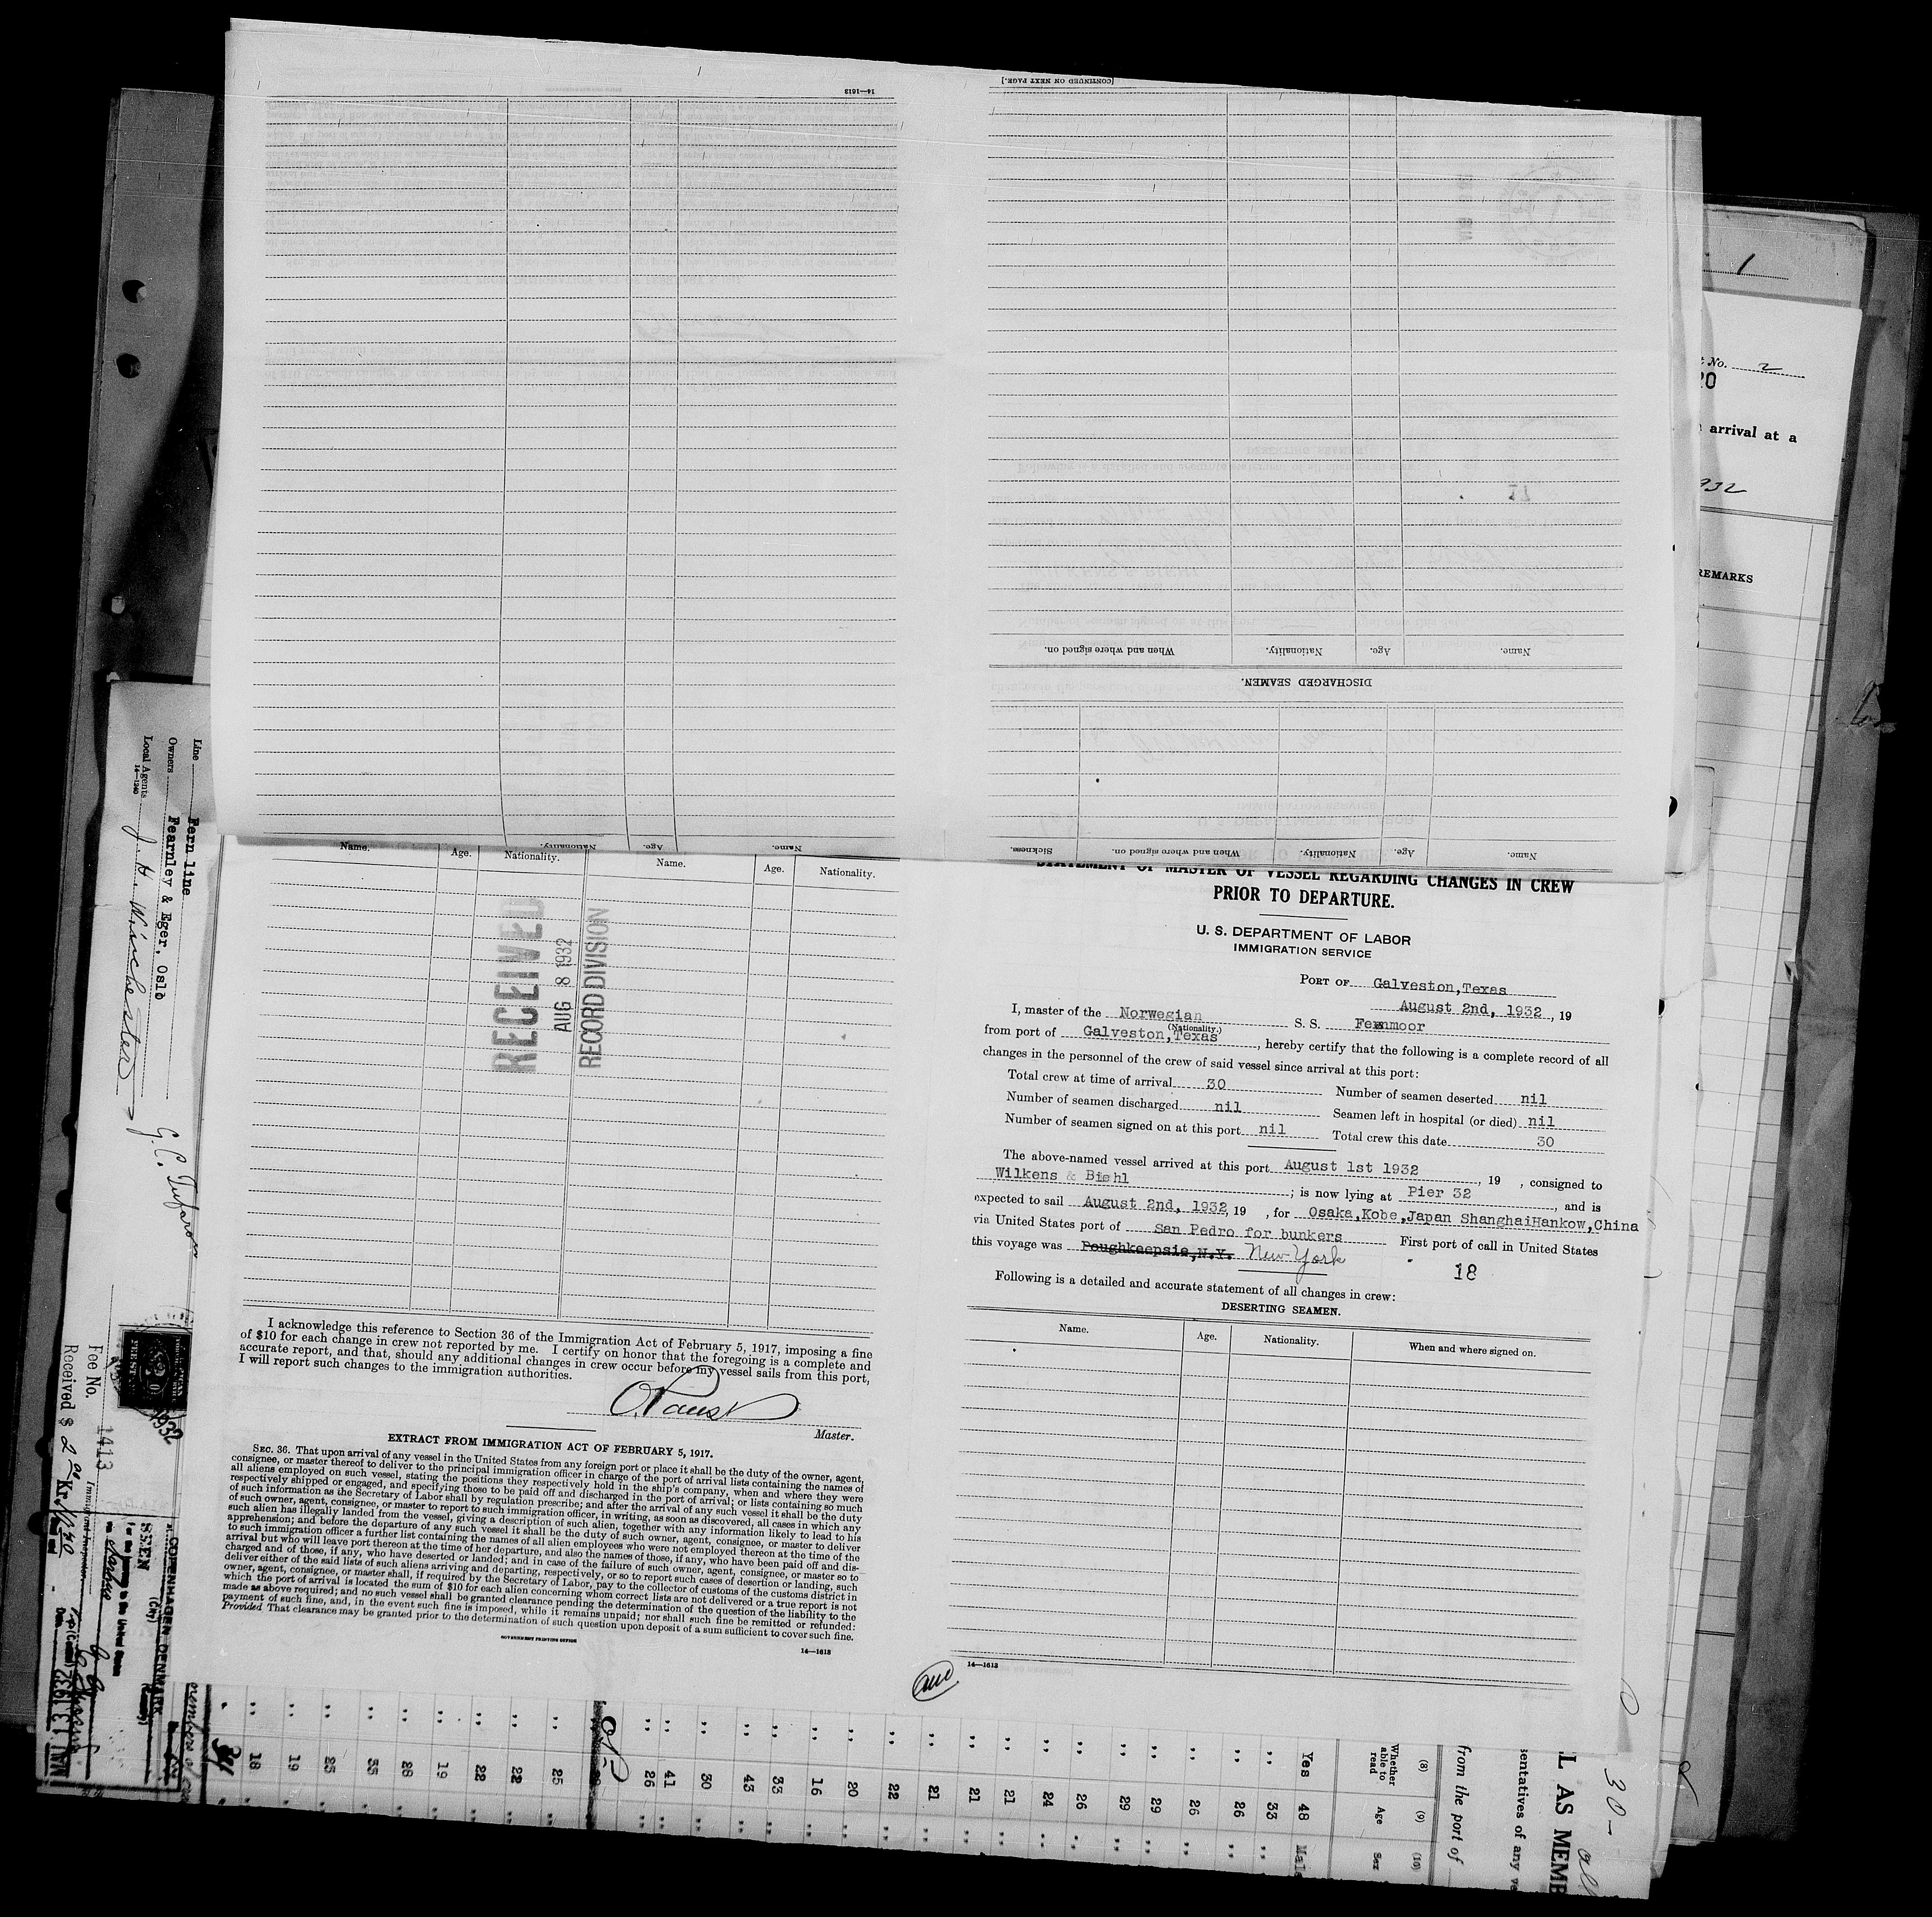 [CONTINUED ON NEXT PAGE.]
14—1613
Name.
Age.
Nationality.
When and where signed on.
DISCHARGED SEAMEN.
Name.
Age.
Nationality.
When and where signed on.
Sickness.
Name.
Age.
Nationality.
Name.
Age.
Nationality.
Name.
Age.
Nationality.
RECEIVED
AUG 8 1932
RECORD DIVISION
I acknowledge this reference to Section 36 of the Immigration Act of February 5, 1917, imposing a fine
of $10 for each change in crew not reported by me. I certify on honor that the foregoing is a complete and
accurate report, and that, should any additional changes in crew occur before my vessel sails from this port,
I will report such changes to the immigration authorities.
Master.
EXTRACT FROM IMMIGRATION ACT OF FEBRUARY 5, 1917.
SEC. 36. That upon arrival of any vessel in the United States from any foreign port or place it shall be the duty of the owner, agent,
consignee, or master thereof to deliver to the principal immigration officer in charge of the port of arrival lists containing the names of
all aliens employed on such vessel, stating the positions they respectively hold in the ship's company, when and where they were
respectively shipped or engaged, and specifying those to be paid off and discharged in the port of arrival; or lists containing so much
of such information as the Secretary of Labor shall by regulation prescribe; and after the arrival of any such vessel it shall be the duty
of such owner, agent, consignee, or master to report to such immigration officer, in writing, as soon as discovered, all cases in which any
such alien has illegally landed from the vessel, giving a description of such alien, together with any information likely to lead to his
apprehension; and before the departure of any such vessel it shall be the duty of such owner, agent, consignee, or master to deliver
to such immigration officer a further list containing the names of all alien employees who were not employed thereon at the time of the
arrival but who will leave port thereon at the time of her departure, and also the names of those, if any, who have been paid off and dis-
charged and of those, if any, who have deserted or landed; and in case of the failure of such owner, agent, consignee, or master so to
deliver either of the said lists of such aliens arriving and departing, respectively, or so to report such cases of desertion or landing, such
owner, agent, consignee, or master shall, if required by the Secretary of Labor, pay to the collector of customs of the customs district in
which the port of arrival is located the sum of $10 for each alien concerning whom correct lists are not delivered or a true report is not
made as above required; and no such vessel shall be granted clearance pending the determination of the question of the liability to the
payment of such fine, and, in the event such fine is imposed, while it remains unpaid; nor shall such fine be remitted or refunded:
Provided That clearance may be granted prior to the determination of such question upon deposit of a sum sufficient to cover such fine.
GOVERNMENT PRINTING OFFICE
14—1613
STATEMENT OF MASTER OF VESSEL REGARDING CHANGES IN CREW
PRIOR TO DEPARTURE.
U. S. DEPARTMENT OF LABOR
IMMIGRATION SERVICE
PORT OF Galveston,Texas
August 2nd, 1932, 19
I, master of the Norwegian S. S. Fernmoor
(Nationality.)
from port of Galveston,Texas, hereby certify that the following is a complete record of all
changes in the personnel of the crew of said vessel since arrival at this port:
Total crew at time of arrival 30 Number of seamen deserted nil
Number of seamen discharged nil Seamen left in hospital (or died) nil
Number of seamen signed on at this port nil Total crew this date 30
The above-named vessel arrived at this port August 1st 1932, 19 , consigned to
Wilkens & Biehl; is now lying at Pier 32, and is
expected to sail August 2nd, 1932, 19 , for Osaka,Kobe,Japan ShanghaiHankow,China
via United States port of San Pedro for bunkers First port of call in United States
this voyage was Poughkeepsie,N.Y. New York
18
Following is a detailed and accurate statement of all changes in crew:
DESERTING SEAMEN.
Name.
Age.
Nationality.
When and where signed on.
14—1613
Line Fern line
Owners Fearnley & Eger, Oslo
Local Agents J. H. Winchester
14—1240
Immigrant Inspector
Fee No. 1413
Received $ 2
COPENHAGEN DENMARK
SEEN
For the journey to the United States
MAI 13 1932
1932
members of
34 18 19 25 35 28 19 22 22 25 26 41 30 43 33 16 20 22 21 21 21 24 26 29 29 26 26 33 48
Yes
Male
(8)
Whether able to read
(9)
Age
(10)
Sex
from the port of
sentatives of any ve
L AS MEMB
30-
1
No. 2
20
arrival at a
932
REMARKS